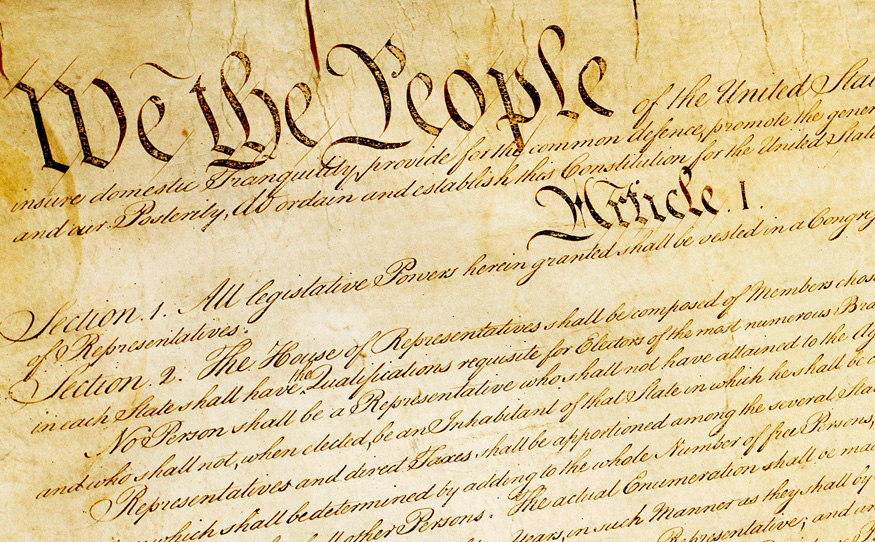 We the People of the United
insure domestic Tranquility, provide for the common defence, promote the
and our Posterity, do ordain and establish this Constitution for the United
Article. I.
Section. 1. All legislative Powers herein granted shall be vested in a
of Representatives.
Section. 2. The House of Representatives shall be composed of Members
in each State shall have the Qualifications requisite for Electors of the most numerous
No Person shall be a Representative who shall not have attained to the
and who shall not, when elected, be an Inhabitant of that State in which he shall be
Representatives and direct Taxes shall be apportioned among the several
which shall be determined by adding to the whole Number of free Persons,
other Persons. The actual Enumeration shall be
Years, in such Manner as they shall by
Representative; and